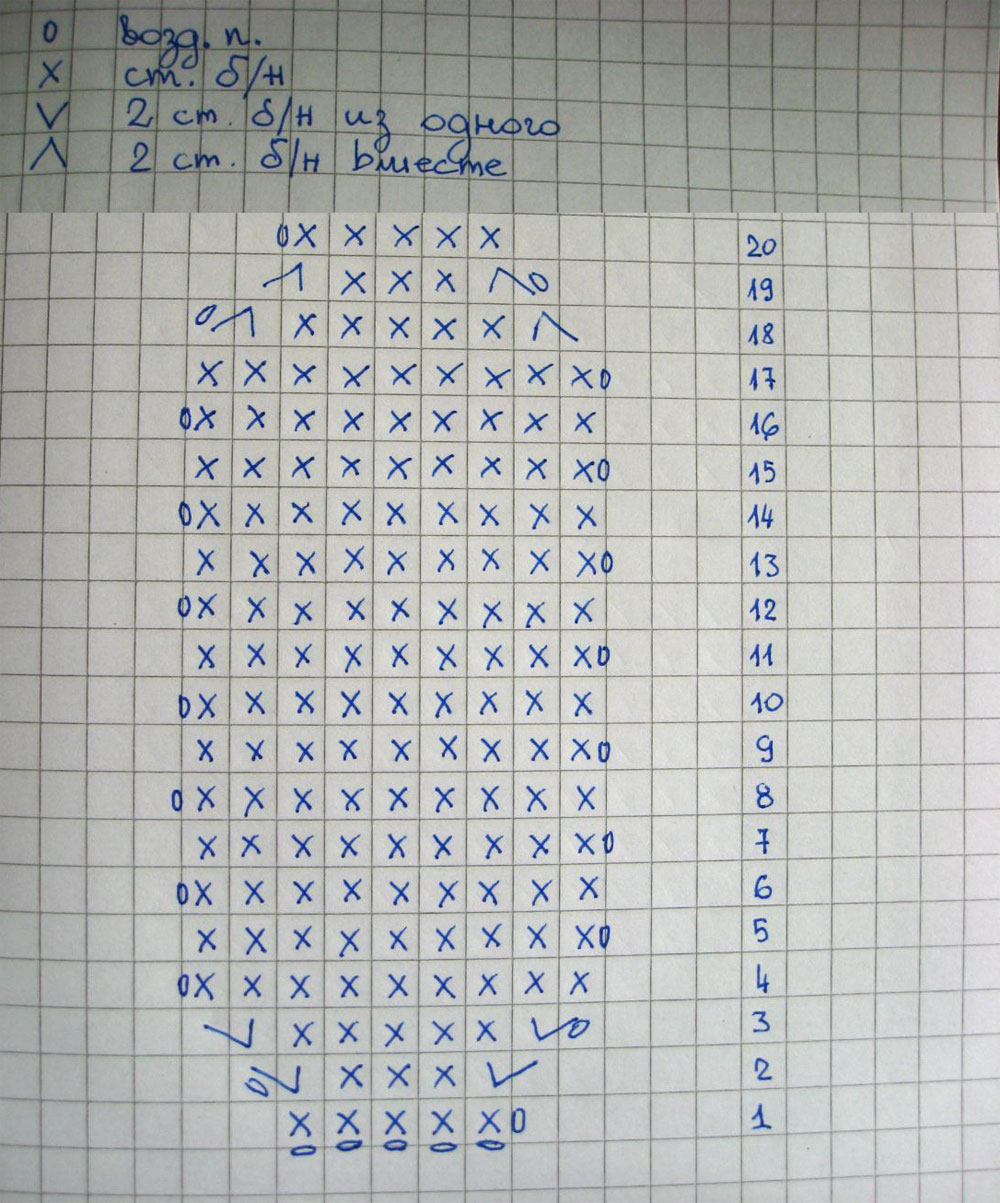 0 возд. п.
X ст. б/н
V 2 ст. б/н из одного
Λ 2 ст. б/н вместе
0X X X X X 20
Λ X X X Λ0 19
0Λ X X X X X Λ 18
X X X X X X X X X0 17
0X X X X X X X X X 16
X X X X X X X X X0 15
0X X X X X X X X X 14
X X X X X X X X X0 13
0X X X X X X X X X 12
X X X X X X X X X0 11
0X X X X X X X X X 10
X X X X X X X X X0 9
0X X X X X X X X X 8
X X X X X X X X X0 7
0X X X X X X X X X 6
X X X X X X X X X0 5
0X X X X X X X X X 4
V X X X X X V0 3
0V X X X V 2
X X X X X0 1
0 0 0 0 0